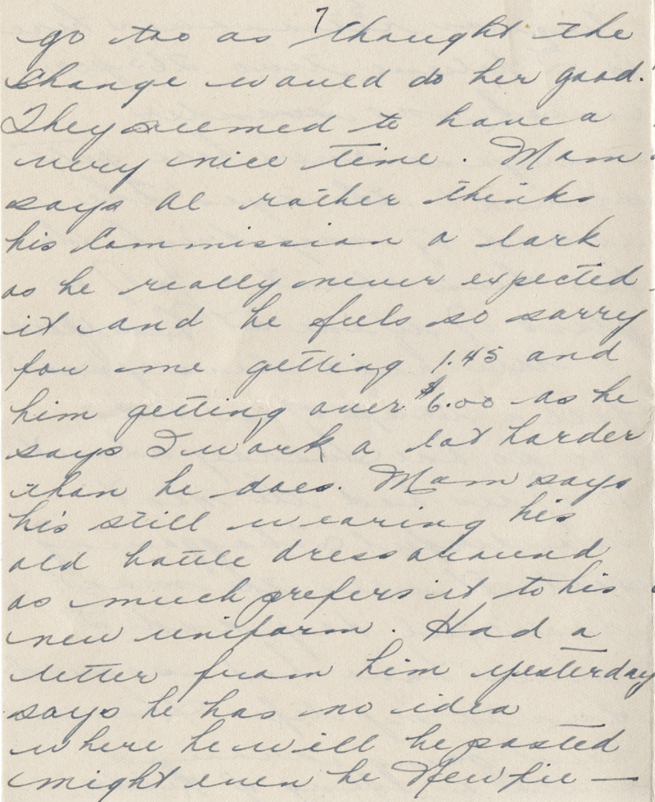 7
go too as thought the
change would do her good.
They seemed to have a
very nice time. Mom
says Al rather thinks
his Commission a lark
as he really never expected
it and he feels so sorry
for me getting 1.45 and
him getting over $6.00 as he
says I work a lot harder
than he does. Mom says
his still wearing his
old battle dress around
as much prefers it to his
new uniform. Had a
letter from him yesterday
says he has no idea
where he will be posted
might even be Newfie —